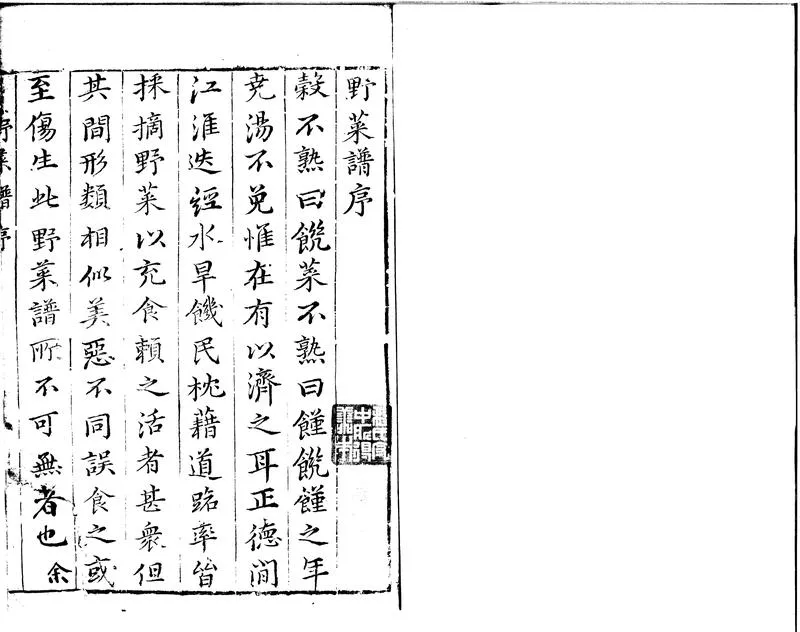 野菜譜序
穀不熟曰饑菜不熟曰饉饑饉之年
尭湯不免惟在有以濟之耳正德間
江淮迭經水旱饑民枕藉道路率皆
採摘野菜以充食賴之活者甚衆但
其間形類相似美惡不同誤食之或
至傷生此野菜譜所不可無者也余
野菜譜序